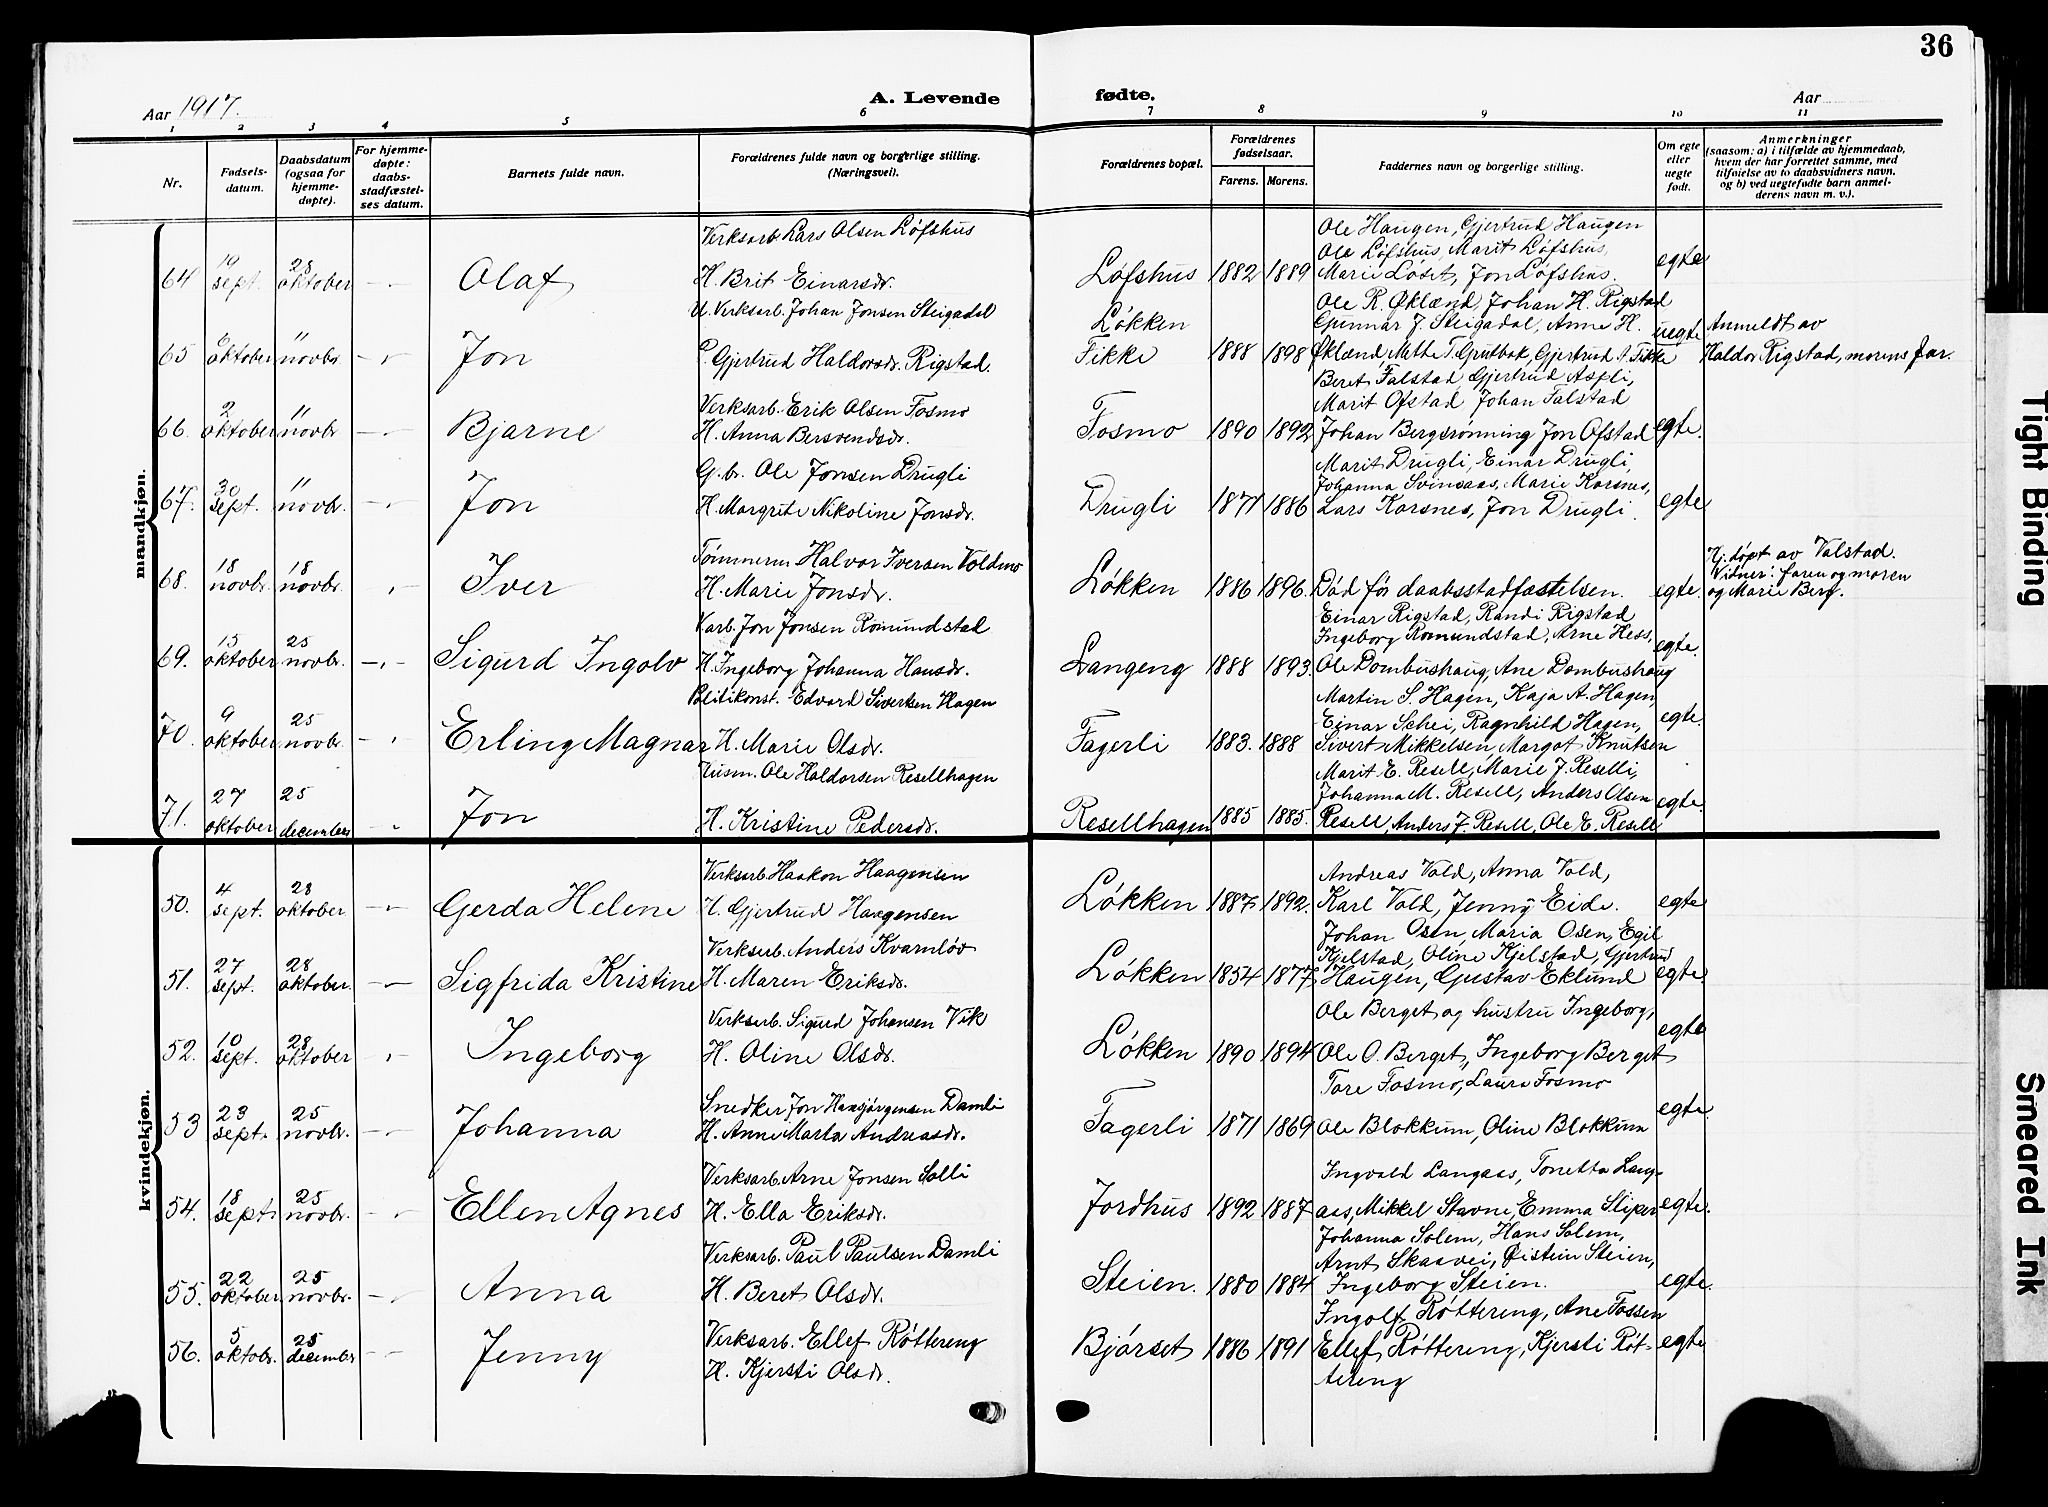 36
Aar 1917.
A. Levende
fødte.
Aar
1 2 3 4 5 6 7 8 9 10 11
Nr.
Fødsels-
datum.
Daabsdatum
(ogsaa for
hjemme-
døpte).
For hjemme-
døpte:
daabs-
stadfæstel-
ses datum.
Barnets fulde navn.
Forældrenes fulde navn og borgerlige stilling.
(Næringsvei).
Forældrenes bopæl.
Forældrenes
fødselsaar.
Farens. Morens.
Faddernes navn og borgerlige stilling.
Om egte
eller
uegte
født.
Anmerkninger
(saasom: a) i tilfælde av hjemmedaab,
hvem der har forrettet samme, med
tilføielse av to daabsvidners navn,
og b) ved uegtefødte barn anmel-
derens navn m. v.).
mandkjøn.
64 19 sept. 28 oktober - Olaf
Verksarb. Lars Olsen Løfshus
H. Brit Einarsdr.
Løfshus 1882 1889
Ole Haugen, Gjertrud Haugen
Ole Løfshus, Marit Løfshus,
Marie Løset, Jon Løfshus.
egte
65 6 oktober 11 novbr. - Jon
U. Verksarb. Johan Jonsen Steigadal
P. Gjertrud Haldorsdr. Rigstad.
Løkken
Fikke 1888 1898
Ole R. Øklænd, Johan H. Rigstad
Gunnar J. Steigadal, Anne H.
Øklænd, Mette T. Grutbak, Gjertrud A. Fikke
uegte
Anmeldt av
Haldor Rigstad, morens far.
66. 2 oktober 11 novbr. - Bjarne
Verksarb. Erik Olsen Fosmo
H. Anna Bersvendsdr.
Fosmo 1890 1892
Beret Falstad, Gjertrud Aspli,
Marit Ofstad, Johan Falstad
Johan Bergsrønning, Jon Ofstad
egte.
67. 30 sept. 11 novbr. - Jon
G.br. Ole Jonsen Drugli
H. Margrete Nikoline Jonsdr.
Drugli 1871 1886
Marit Drugli, Einar Drugli,
Johanna Svinsaas, Marie Korsnes,
Lars Korsnes, Jon Drugli.
egte
68. 18 novbr. 18 novbr. - Iver
Tømmerm. Halvor Iversen Voldmo
H. Marie Jonsdr.
Løkken 1886 1896.
Død før daabsstadfæstelsen.
egte.
Hj. døpt av Valstad.
Vidner: faren og moren
og Marie Berg.
69. 15 oktober 25 novbr. - Sigurd Ingolv
Varb. Jon Jonsen Romundstad
H. Ingeborg Johanna Hansdr.
Langeng 1888 1893.
Einar Rigstad, Randi Rigstad
Ingeborg Romundstad, Arne Hess,
Ole Dombushaug, Ane Dombushaug
egte.
70. 9 oktober 25 novbr. - Erling Magnar
Politikonst. Edvard Sivertsen Hagen
H. Marie Olsdr.
Fagerli 1883. 1888
Martin S. Hagen, Kaja A. Hagen,
Einar Schei, Ragnhild Hagen,
Sivert Mikkelsen, Margot Knutsen
egte.
71. 27 oktober 25 december - Jon
Husm. Ole Haldorsen Resellhagen
H. Kristine Pedersdr.
Resellhagen 1885 1885.
Marit E. Resell, Marie J. Reselli,
Johanna M. Resell, Anders Olsen
Resell, Anders J. Resell, Ole E. Resell
egte.
kvindekjøn.
50. 4 sept. 28 oktober - Gerda Helene
Verksarb. Haakon Haagensen
H. Gjertrud Haagensen
Løkken 1887 1892.
Andreas Vold, Anna Vold,
Karl Vold, Jenny Eide.
egte
51. 27 sept. 28 oktober. - Sigfrida Kristine
Verksarb. Anders Kvarnløv
H. Maren Eriksdr.
Løkken 1854 1877
Johan Osen, Maria Osen, Egil
Kjelstad, Oline Kjelstad, Gjertrud
Haugen, Gustav Eklund
egte.
52. 10 sept. 28 oktober - Ingeborg
Verksarb. Sigurd Johansen Vik
H. Oline Olsdr.
Løkken 1890 1894
Ole Berget og hustru Ingeborg,
Ole O. Berget, Ingeborg Berget
Tore Fosmo, Laura Fosmo
egte
53 23 sept. 25 novbr. - Johanna
Snedker Jon Hansjørgensen Damli
H. Anne Marta Andreasdr.
Fagerli 1871 1869
Ole Blokkum, Oline Blokkum
egte.
54. 18 sept. 25 novbr. - Ellen Agnes
Verksarb. Arne Jonsen Solli
H. Ella Eriksdr.
Jordhus 1892 1887
Ingvald Langaas, Tonetta Lang-
aas, Mikkel Stavne, Emma Sliper
egte.
55. 22 oktober 25 novbr. - Anna
Verksarb. Paul Paulsen Damli
H. Beret Olsdr.
Steien. 1880 1884
Johanna Solem, Hans Solem,
Arnt Skaavei, Øistein Steien,
Ingeborg Steien.
egte.
56. 5 oktobr. 25 december - Jenny
Verksarb. Ellef Røttereng
H. Kjersti Olsdr.
Bjørset 1886 1891
Ingolf Røttereng, Ane Fossen
Ellef Røttereng, Kjersti Røt-
tereng
egte
Tight Binding
Smeared Ink